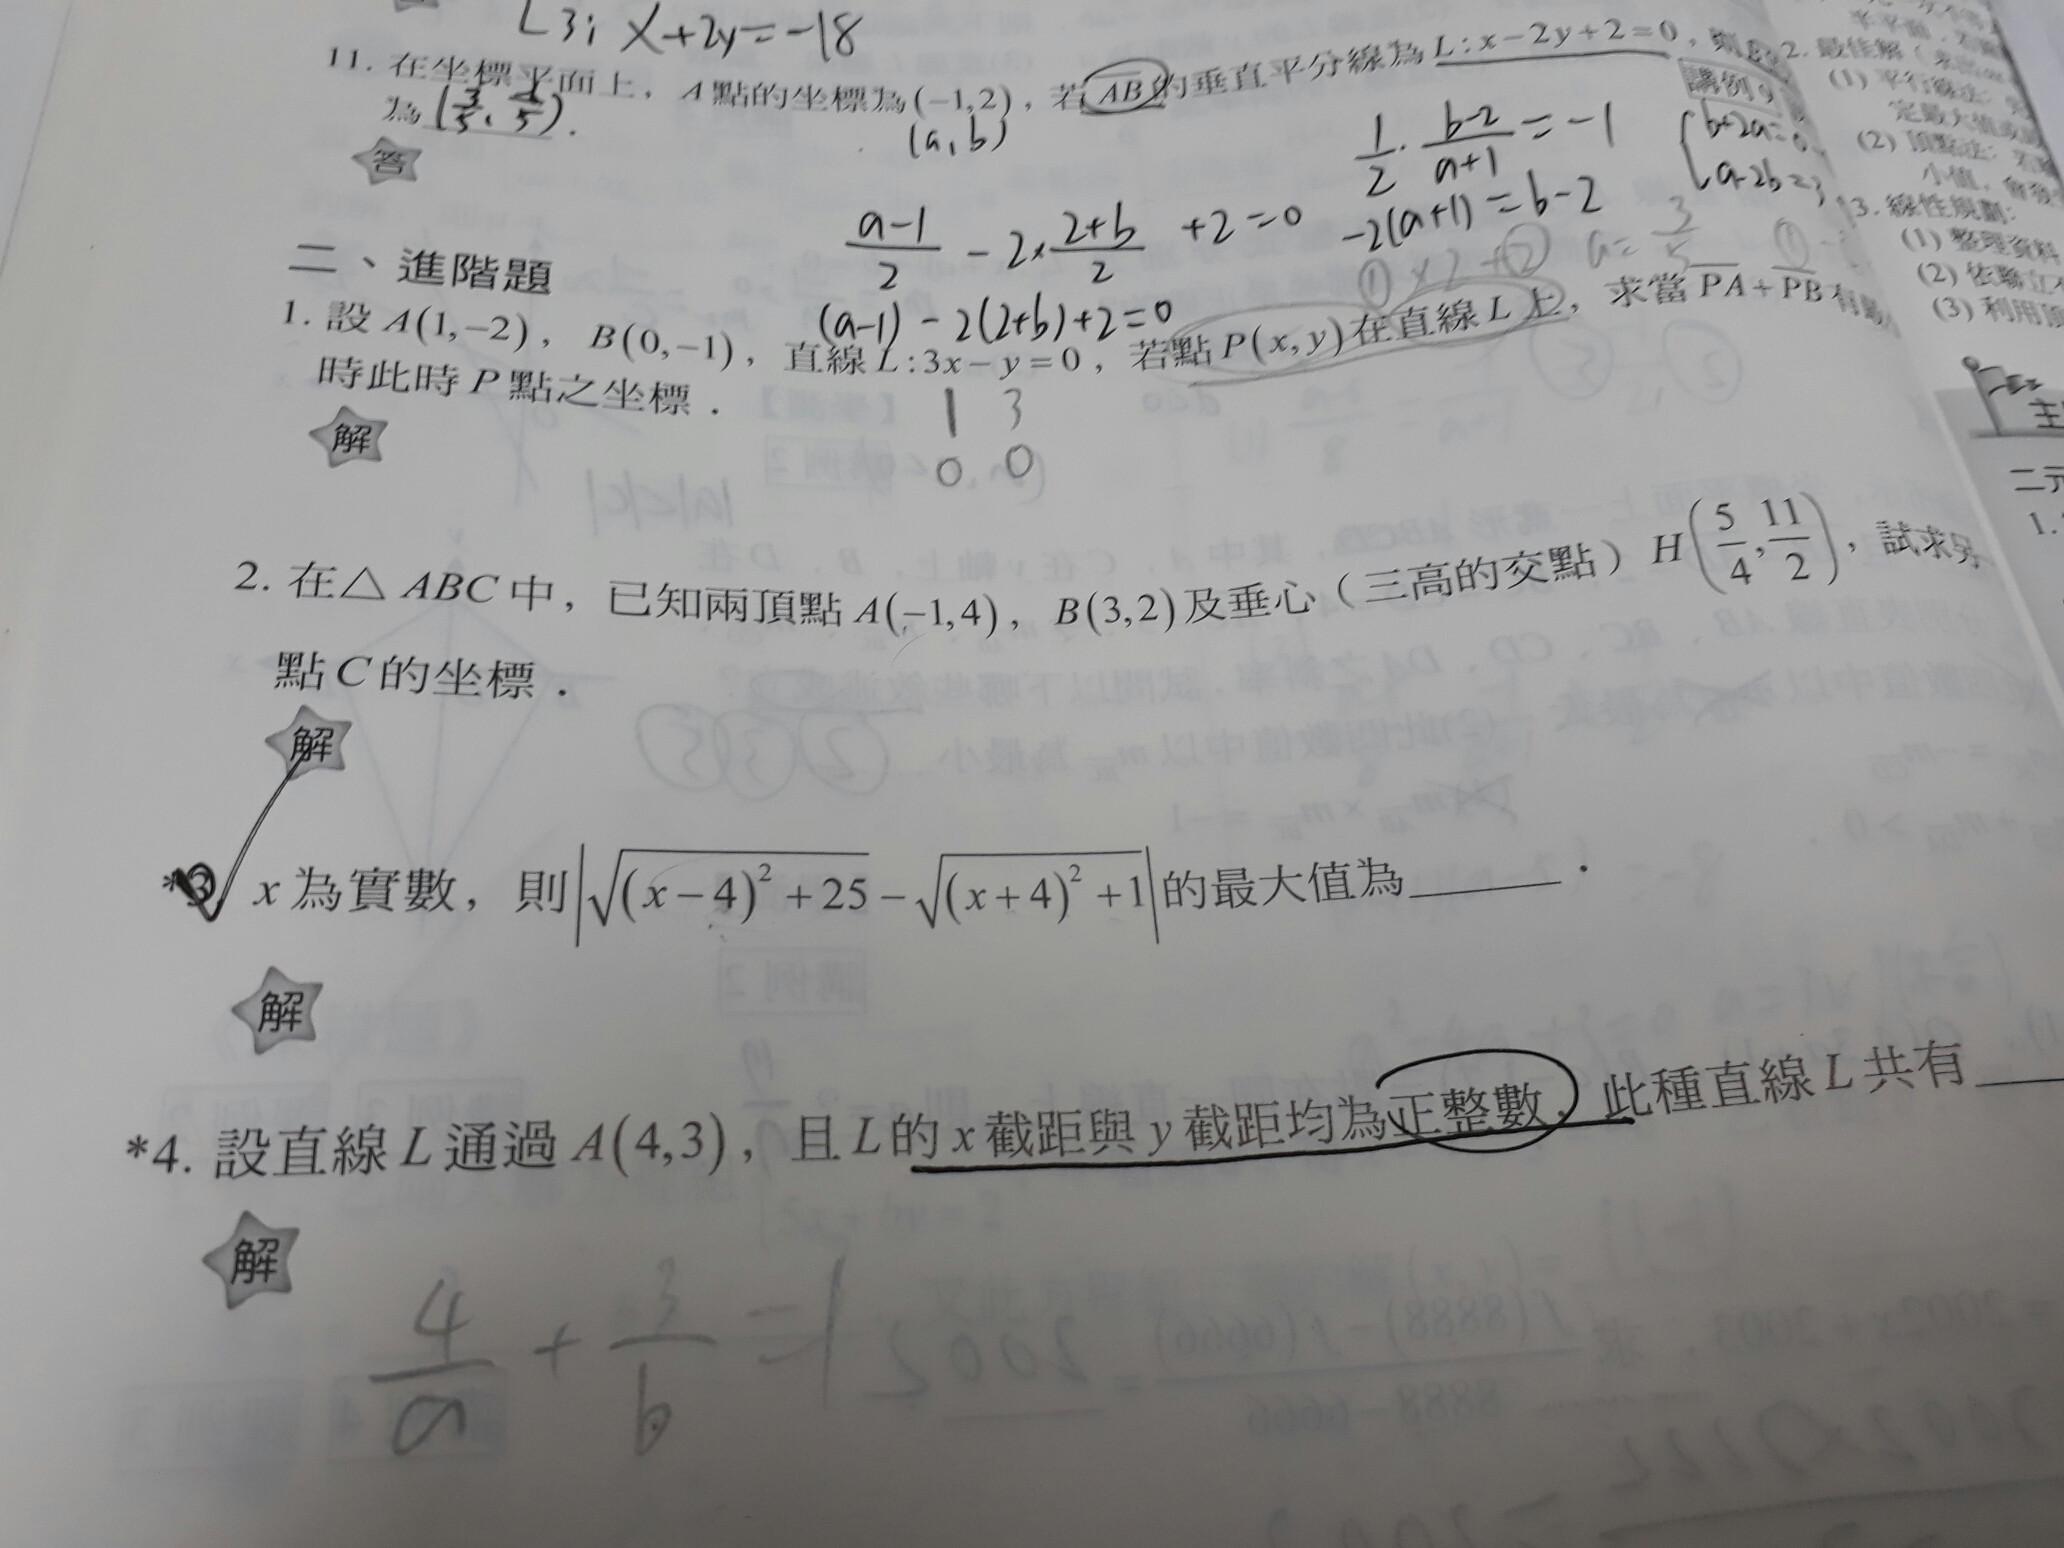 L3: x+2y=-18
11. 在坐標平面上，A點的坐標為(-1,2)，若AB的垂直平分線為L:x-2y+2=0，則
為 .
(a,b)
答
1/2 · (b-2)/(a+1) = -1
{b+2a=0
a-2b=3
-2(a+1)=b-2
①×2+② a=3/5
(a-1)/2 - 2×(2+b)/2 +2=0
(a-1)-2(2+b)+2=0
二、進階題
1. 設A(1,-2)，B(0,-1)，直線L:3x-y=0，若點P(x,y)在直線L上，求當PA+PB有
時此時P點之坐標．
1 3
0 0
解
2. 在△ABC中，已知兩頂點A(-1,4)，B(3,2)及垂心（三高的交點）H(5/4,11/2)，試求另
點C的坐標．
解
*3. x為實數，則|√((x-4)²+25)-√((x+4)²+1)|的最大值為______．
解
*4. 設直線L通過A(4,3)，且L的x截距與y截距均為正整數，此種直線L共有
解
4/a + 3/b = 1
講例9
2. 最佳解
(1) 平行線法:
(2) 頂點法:
小值，
3. 線性規劃:
(1) 整理資料
(2) 依聯立
(3) 利用頂
主
二元
1.